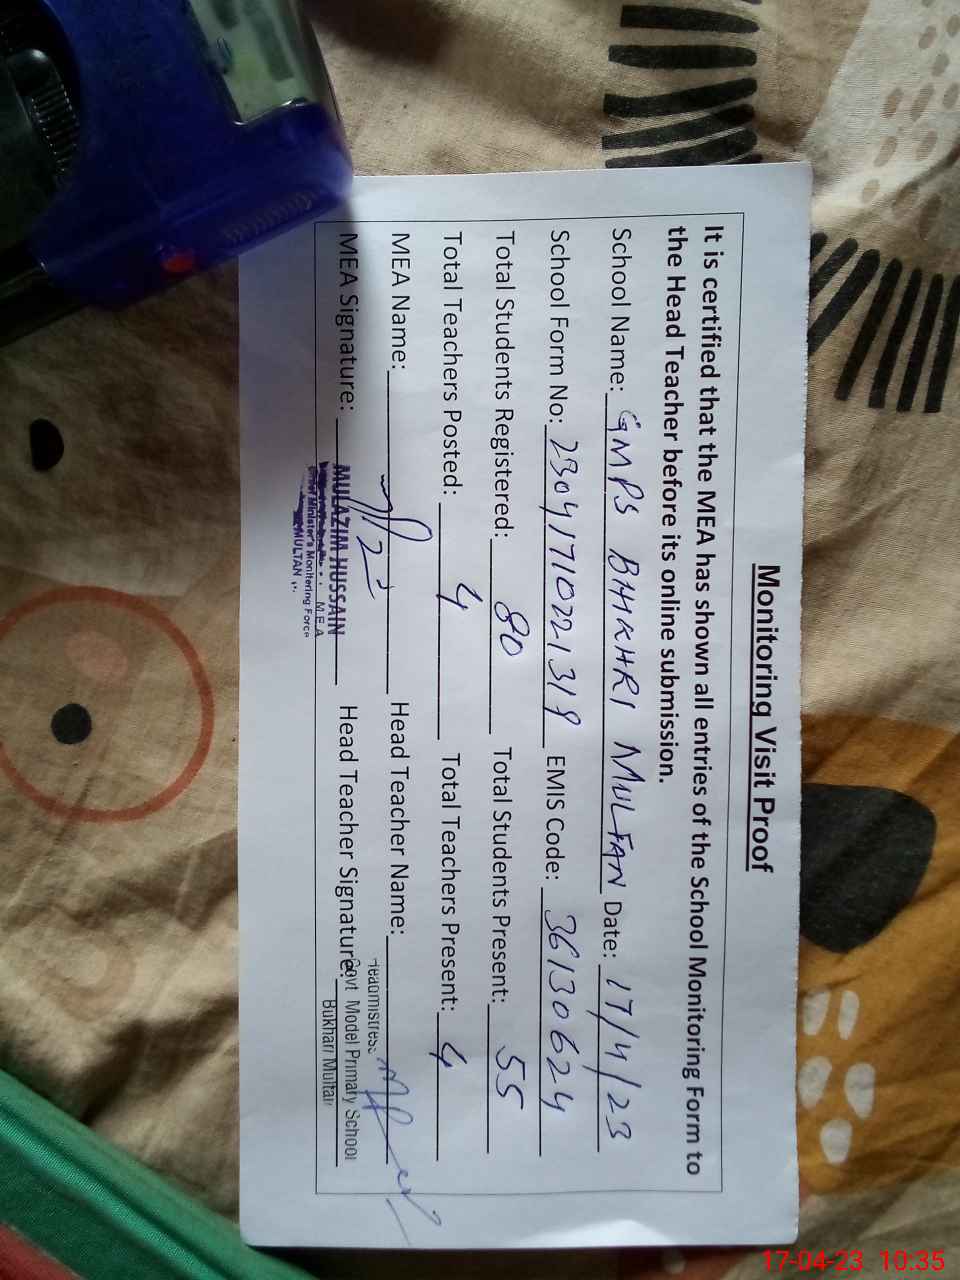 Monitoring Visit Proof
It is certified that the MEA has shown all entries of the School Monitoring Form to
the Head Teacher before its online submission.
School Name: GMPS BHKHRI MULTAN Date: 17/4/23
School Form No: 23041710221319 EMIS Code: 36130624
Total Students Registered: 80 Total Students Present: 55
Total Teachers Posted: 4 Total Teachers Present: 4
MEA Name: Head Teacher Name:
MEA Signature: Head Teacher Signature:
MULAZIM HUSSAIN
M.E.A
Chief Minister's Monitoring Force
MULTAN
Headmistress
Govt Model Primary School
Bukhari Multan
17-04-23 10:35